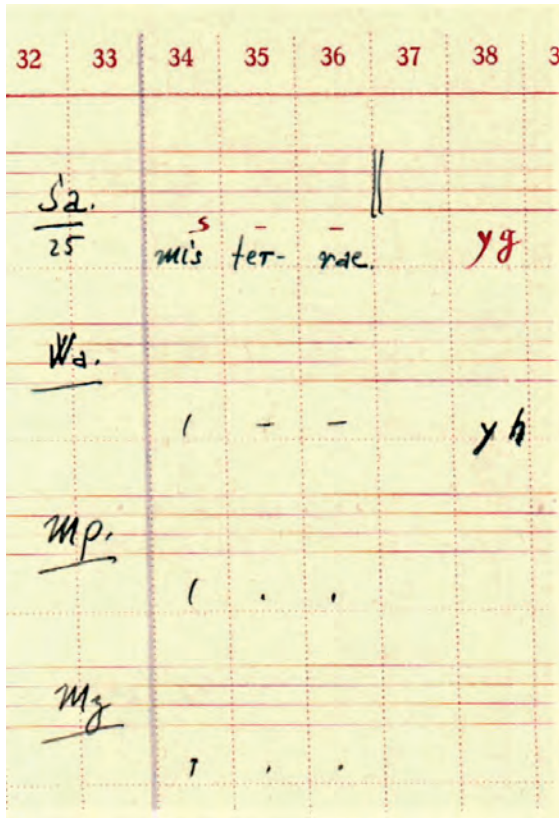 32 33 34 35 36 37 38 3
Sa.
25
s - -
mis ter- rae. yg
Wa.
/ - - yh
Mp.
( . .
Mz
. .